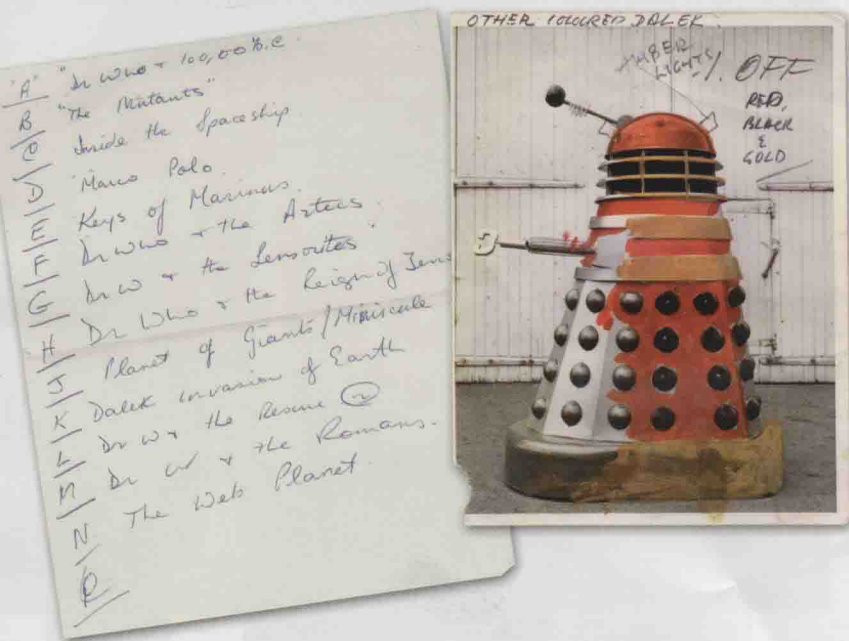 "A" "Dr Who + 100,000 B.C.
B "The Mutants"
C Inside the Spaceship
D Marco Polo
E Keys of Marinus.
F Dr Who + the Aztecs
G Dr W + the Sensorites.
H Dr Who + the Reign of
J Planet of Giants / Miniscule
K Dalek invasion of Earth
L Dr W + the Rescue 2
M Dr W + the Romans.
N The Web Planet
OTHER COLOURED DALEK.
AMBER
LIGHTS
1. OFF
RED,
BLACK
&
GOLD